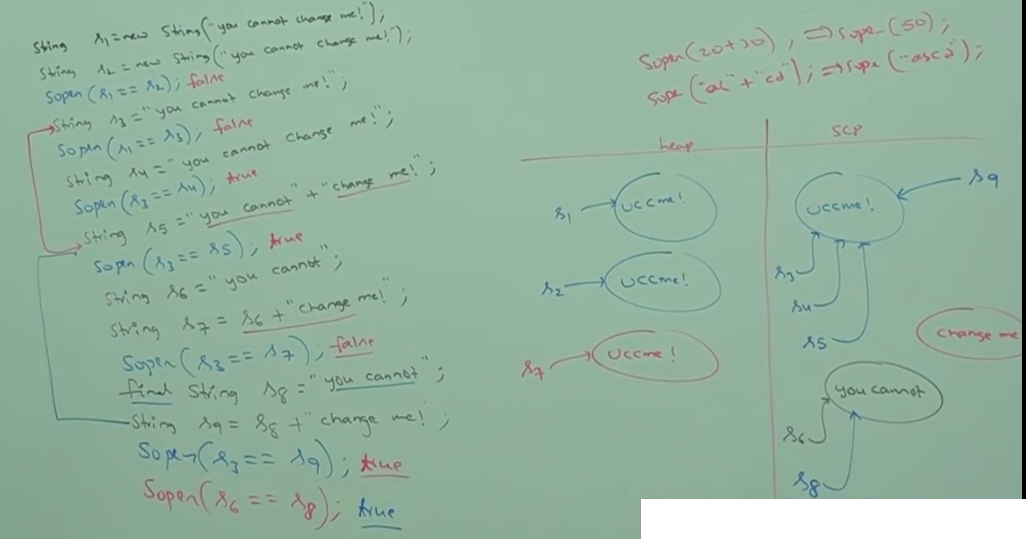 String s1=new String("you cannot change me!");
String s2=new String("you cannot change me!");
Sopen(s1==s2); false
String s3="you cannot change me!";
Sopen(s1==s3); false
String s4="you cannot change me!";
Sopen(s3==s4); true
String s5="you cannot"+"change me!";
Sopen(s3==s5); true
String s6="you cannot";
String s7=s6+"change me!";
Sopen(s3==s7); false
final String s8="you cannot";
String s9=s8+"change me!";
Sopen(s3==s9); true
Sopen(s6==s8); true
Sopen(20+30); ⇒ Sope(50);
Sope("ab"+"cd"); ⇒ Sope("abcd");
heap
SCP
s1
UCCme!
s2
UCCme!
s7
UCCme!
UCCme!
s9
s3
s4
s5
change me
you cannot
s6
s8